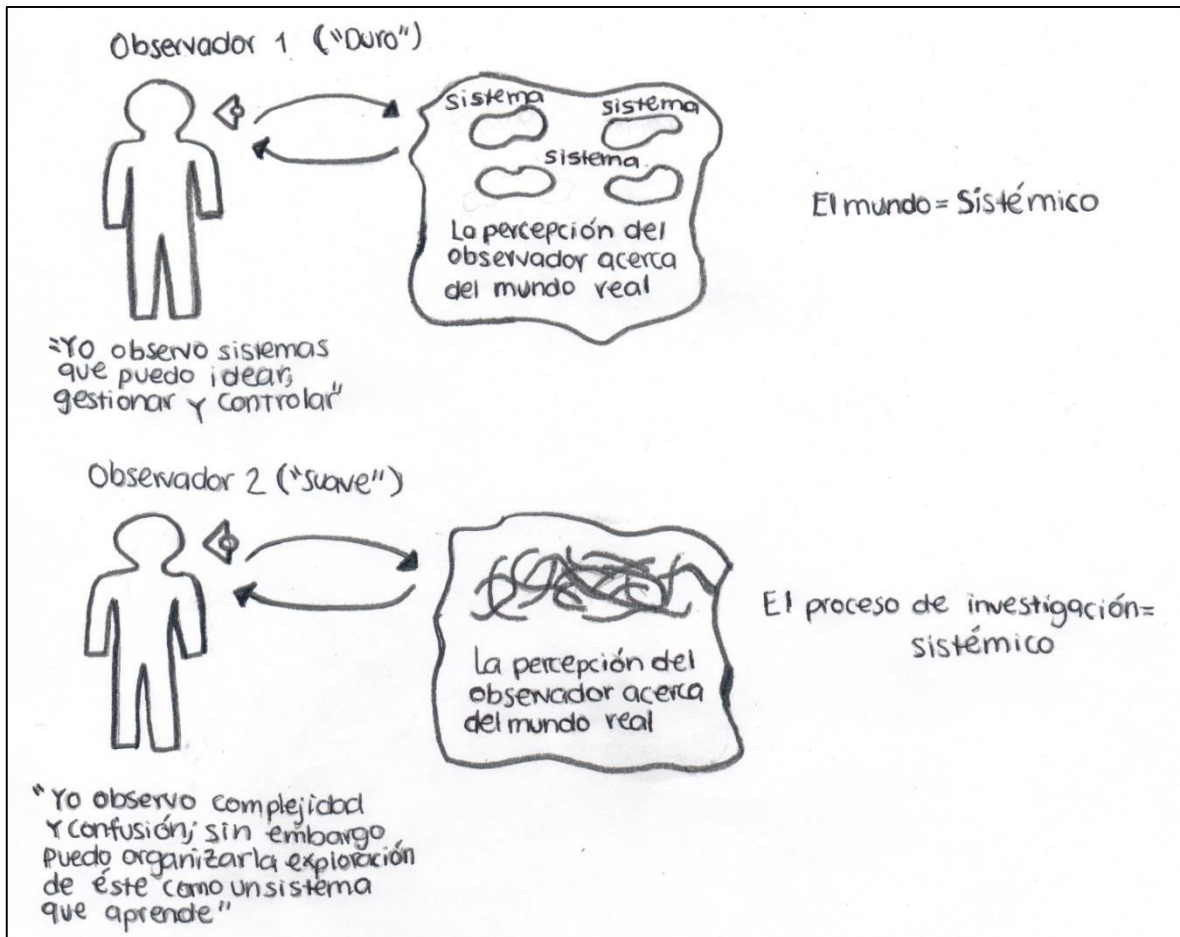 Observador 1 ("Duro")
sistema
sistema
sistema
La percepción del
observador acerca
del mundo real
El mundo = Sistémico
"Yo observo sistemas
que puedo idear,
gestionar y controlar"
Observador 2 ("Suave")
La percepción del
observador acerca
del mundo real
El proceso de investigación=
sistémico
"Yo observo complejidad
y confusión; sin embargo
puedo organizar la exploración
de éste como un sistema
que aprende"